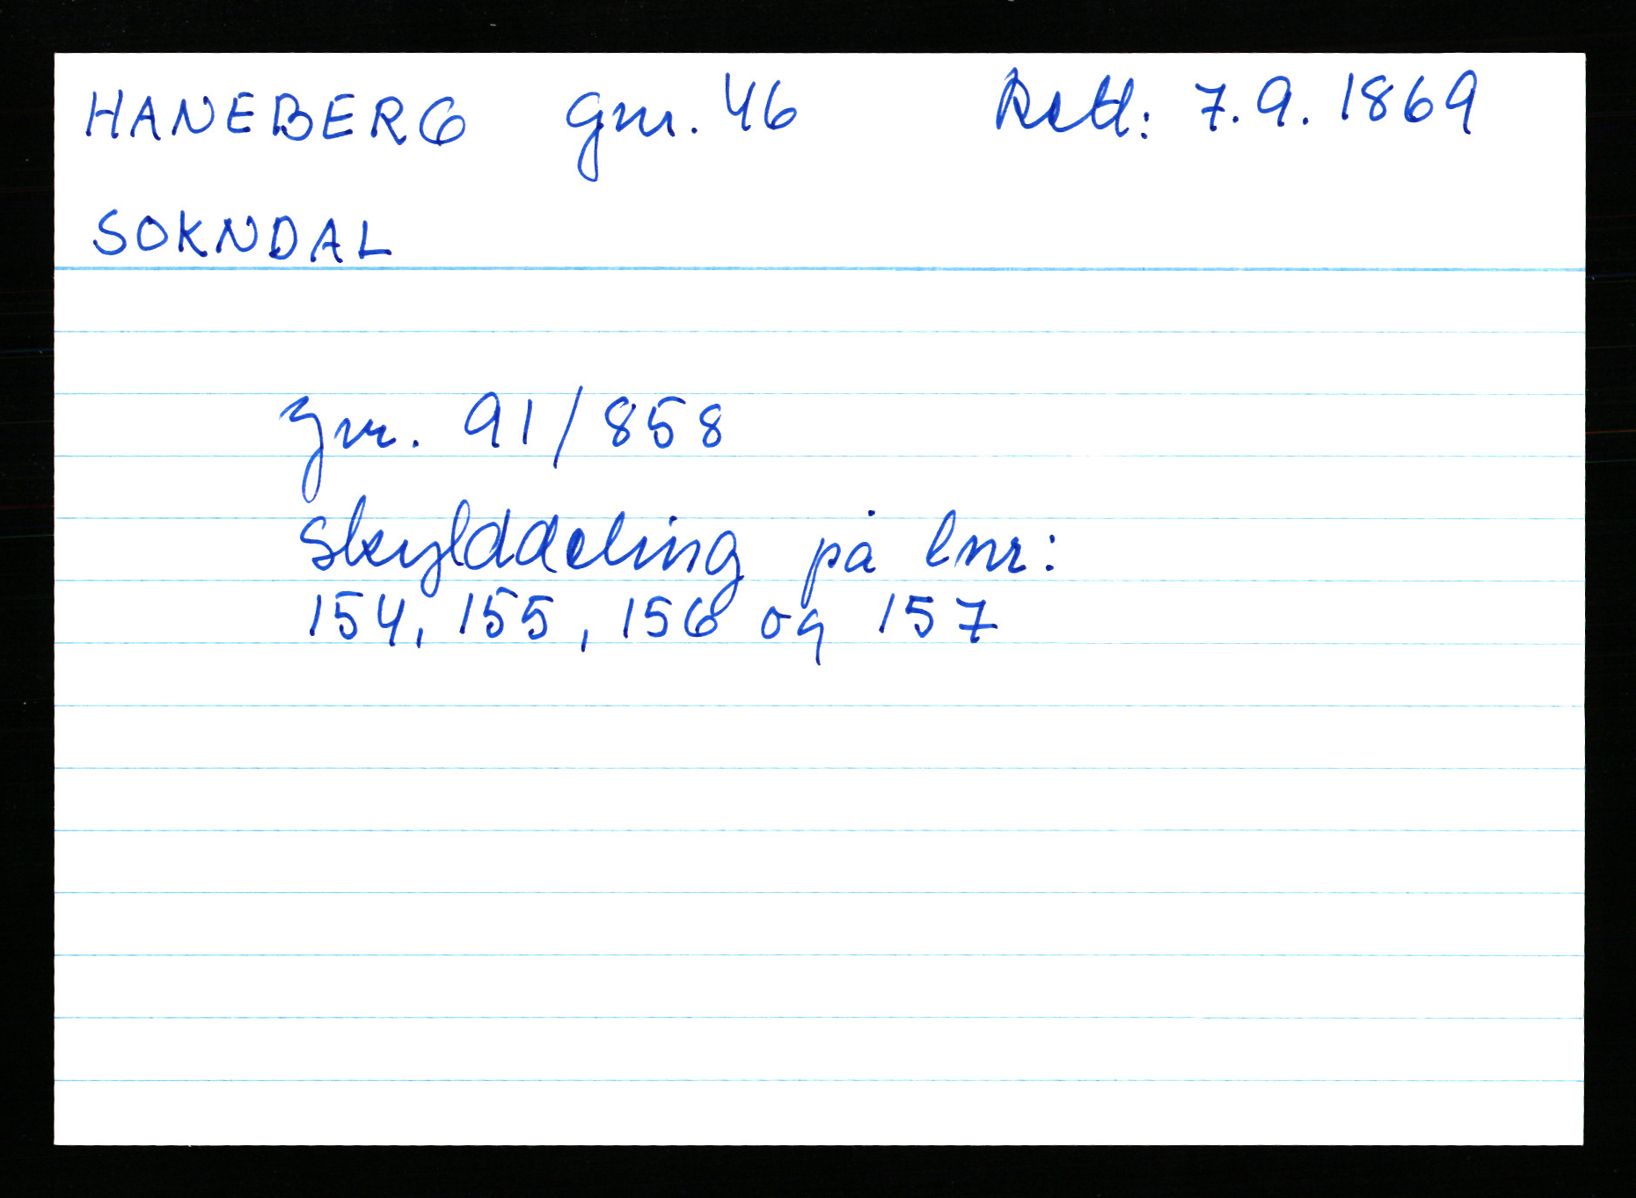 HANEBERG gnr. 46 Rettl: 7.9.1869
SOKNDAL
Jnr. 91/858
Skylddeling på lnr:
154, 155, 156 og 157